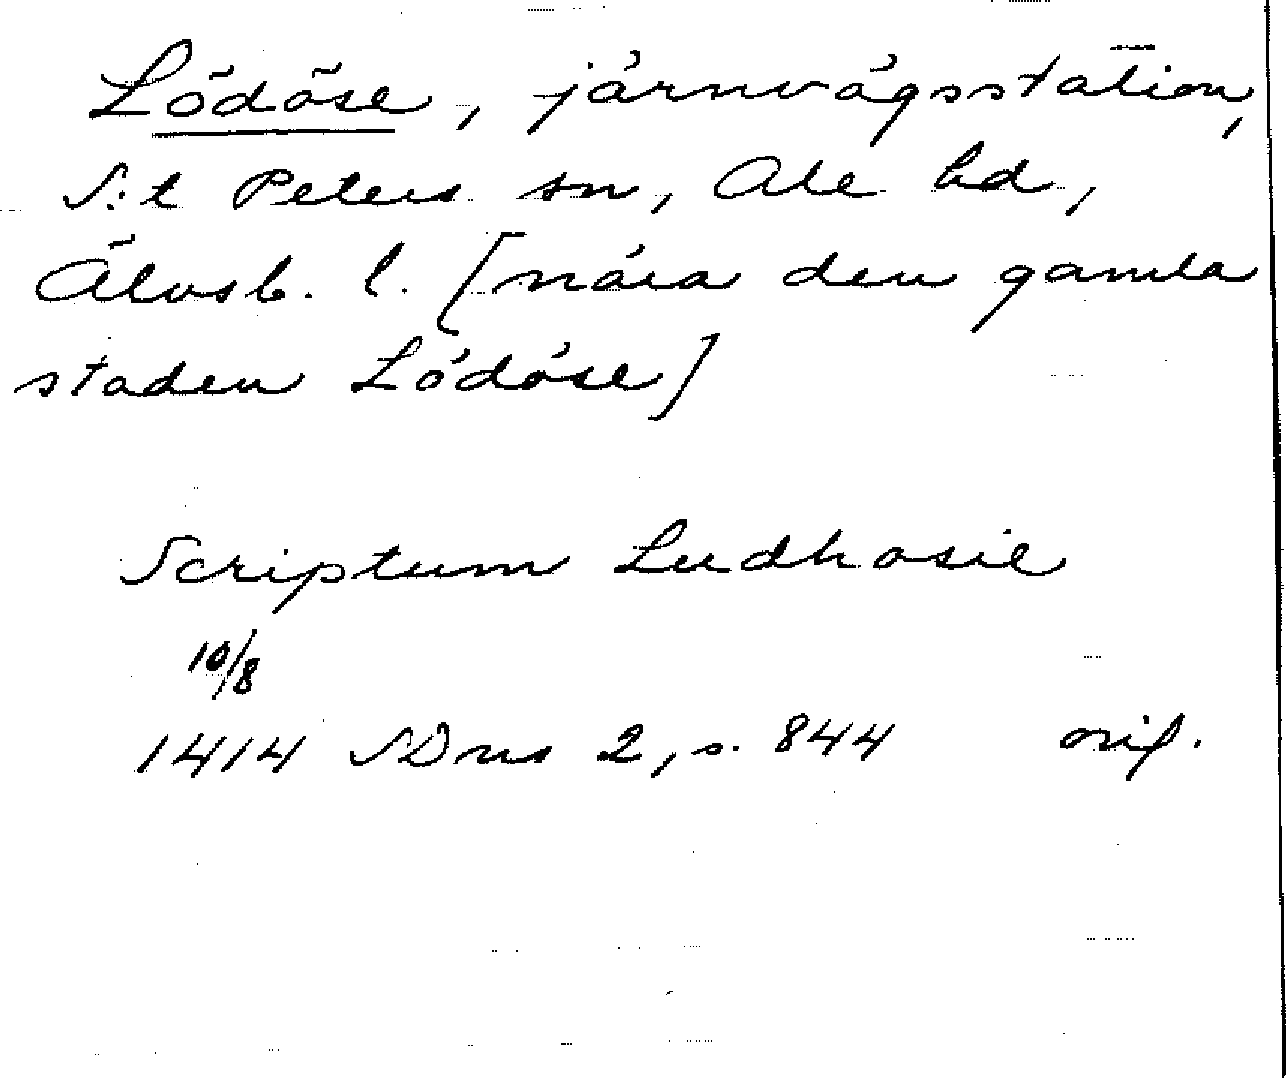 Lödöse, järnvägsstation,
S:t Peters sn, Ale hd,
Älvsb. l. [nära den gamla
staden Lödöse]
Scriptum Ludhosie
10/8
1414 SDns 2, s. 844 orig.